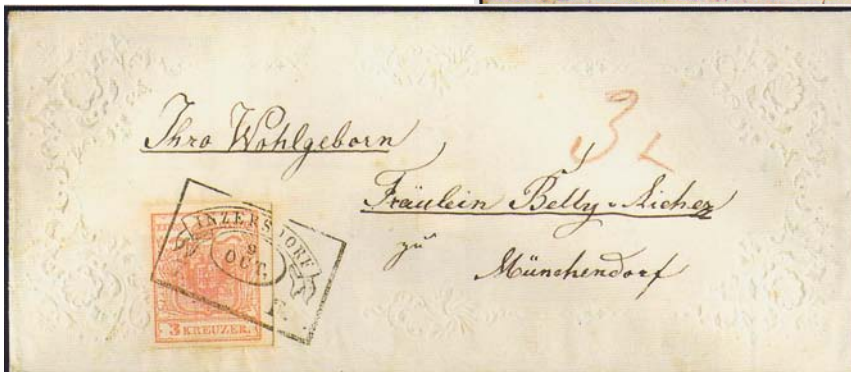 Ihro Wohlgeborn
3
Fräulein Betty v. Aicher
zu
Münchendorf
INZERSDORF
9
OCT.
3 KREUZER.